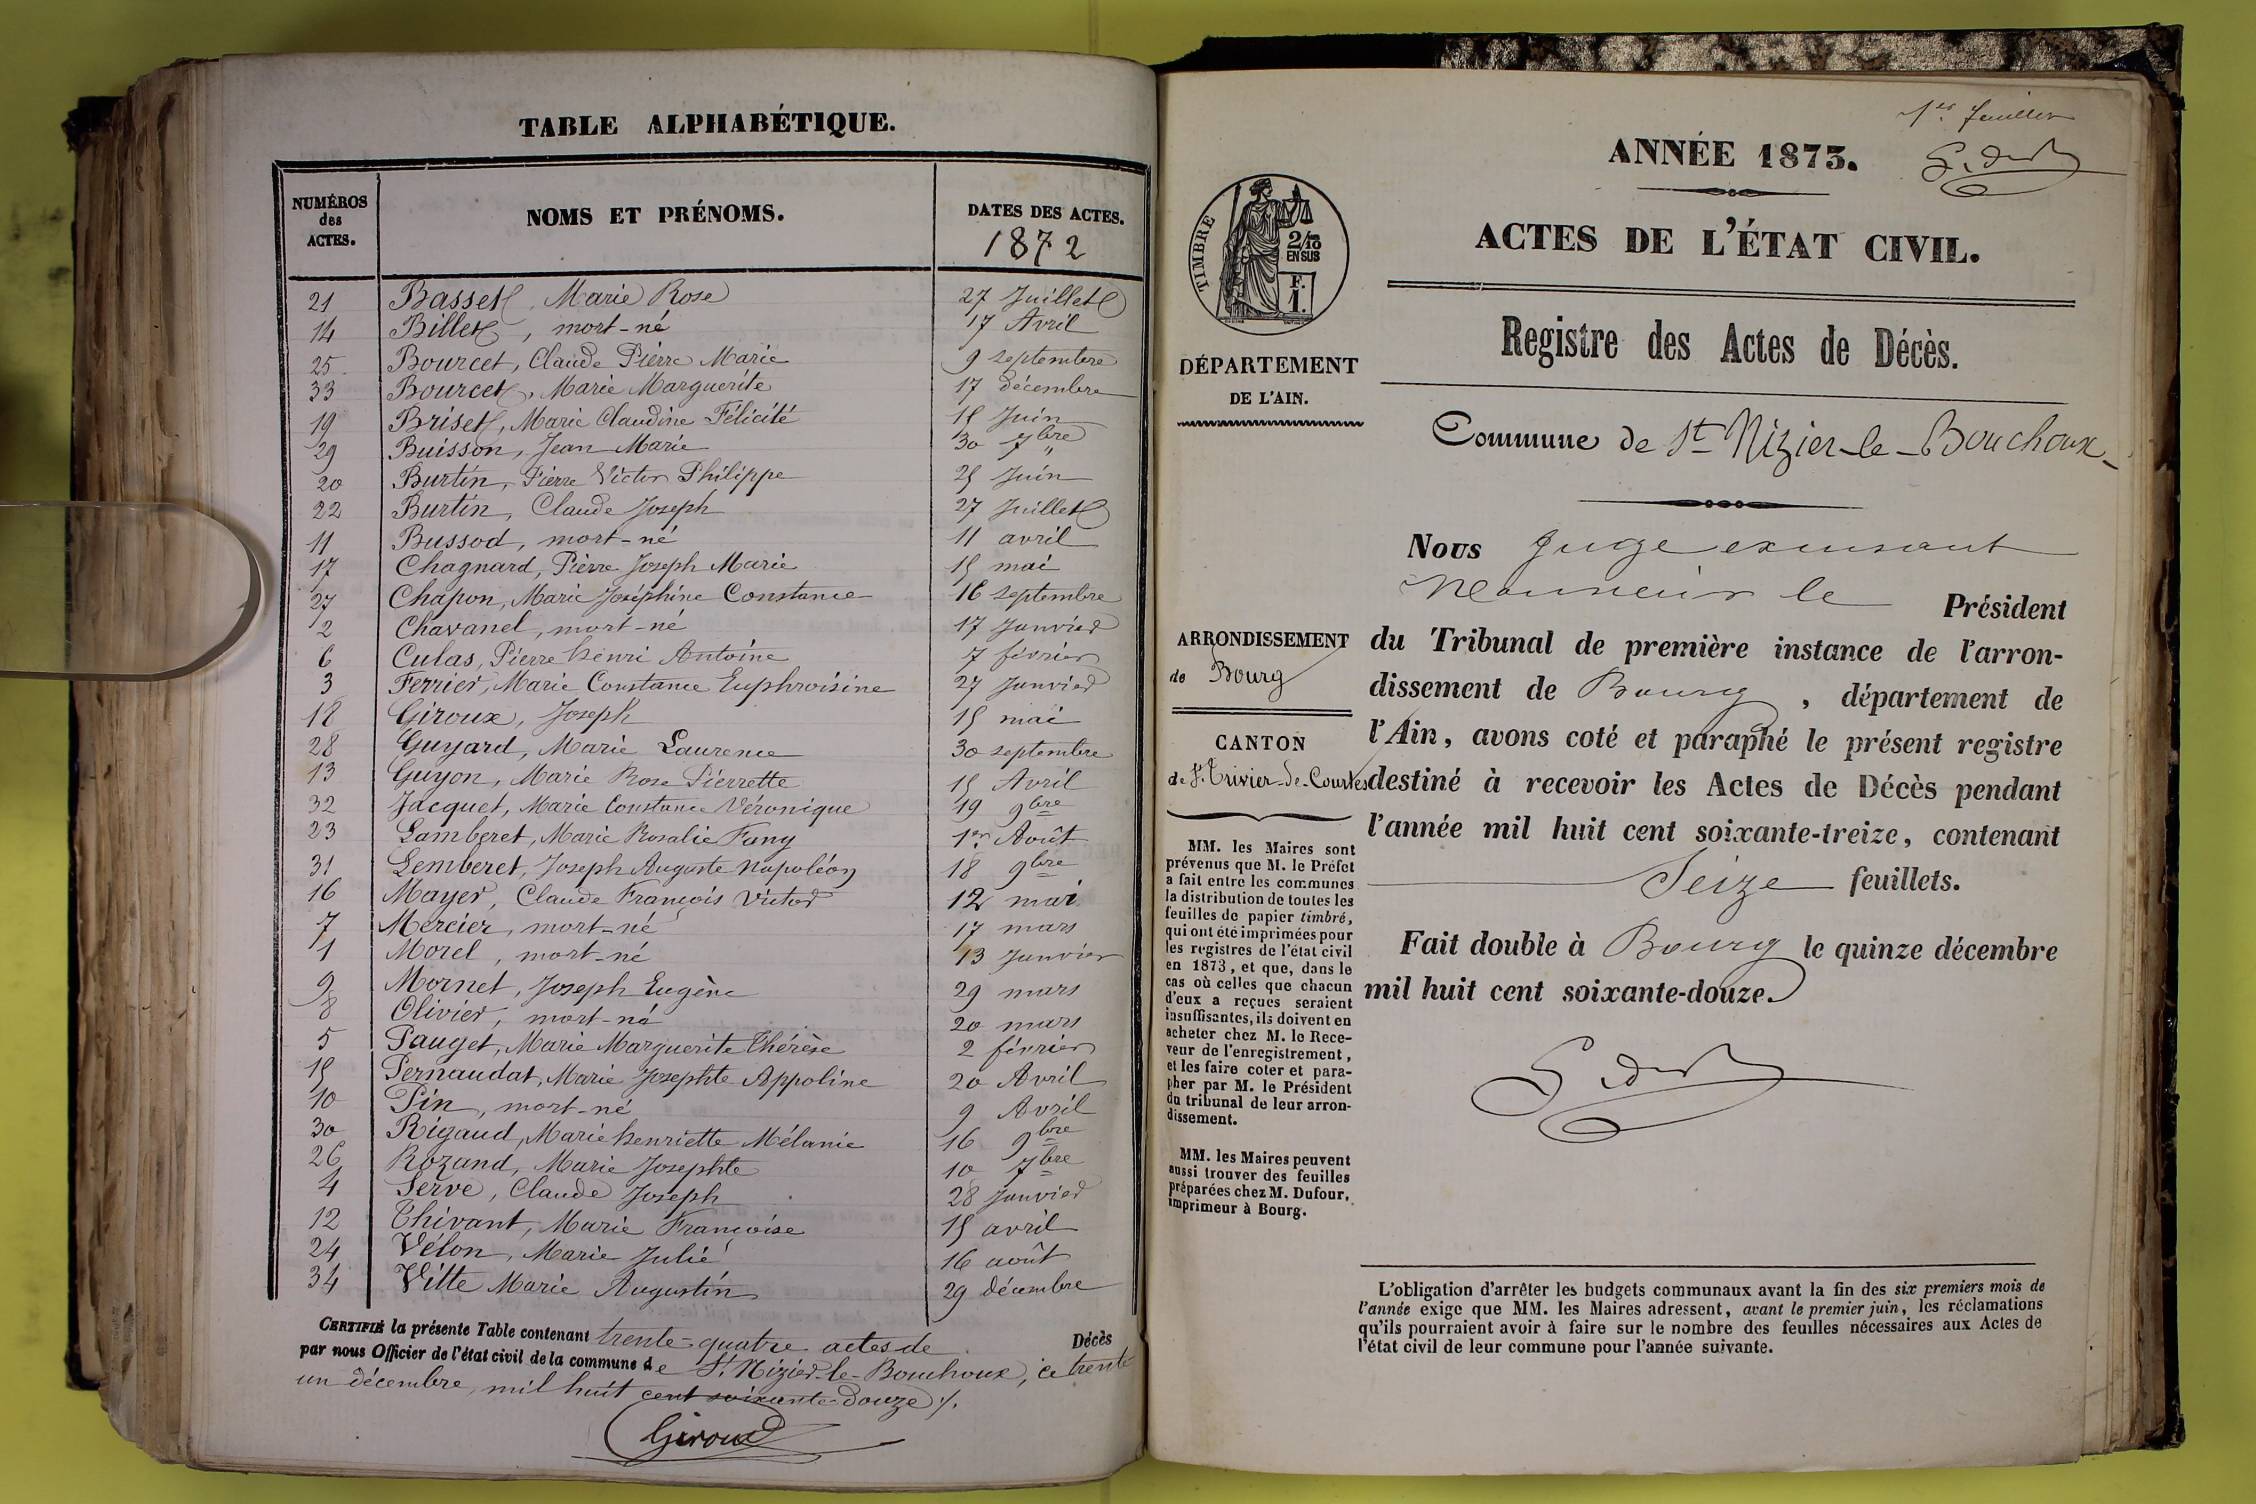 TABLE ALPHABÉTIQUE.
NUMÉROS des ACTES. NOMS ET PRÉNOMS. DATES DES ACTES.
1872
21 Basset, Marie Rose 27 Juillet
14 Billet, mort-né 17 Avril
25 Bourcet, Claude Pierre Marie 9 septembre
33 Bourcet, Marie Marguerite 17 décembre
19 Briset, Marie Claudine Félicité 15 Juin
29 Buisson, Jean Marie 30 7bre
20 Burtin, Pierre Victor Philippe 25 Juin
22 Burtin, Claude Joseph 27 Juillet
11 Bussod, mort-né 11 avril
17 Chagnard, Pierre Joseph Marie 15 mai
27 Chapon, Marie Joséphine Constance 16 septembre
2 Chavanel, mort-né 17 Janvier
6 Culas, Pierre henri Antoine 7 février
3 Ferrier, Marie Constance Euphroisine 27 Janvier
18 Giroux, Joseph 15 mai
28 Guyard, Marie Laurence 30 septembre
13 Guyon, Marie Rose Pierrette 15 Avril
32 Jacquet, Marie Constance Véronique 19 9bre
23 Lamberet, Marie Rosalie Fany 1er Août
31 Lemberet, Joseph Auguste Napoléon 18 9bre
16 Mayer, Claude François Victor 12 mai
7 Mercier, mort-né 17 mars
1 Morel, mort-né 13 Janvier
9 Mornet, Joseph Eugène 29 mars
8 Olivier, mort-né 20 mars
5 Pauget, Marie Marguerite Thérèse 2 février
15 Pernaudat, Marie Josephte Appoline 20 Avril
10 Pin, mort-né 9 Avril
30 Rigaud, Marie henriette Mélanie 16 9bre
26 Rozand, Marie Josephte 10 7bre
4 Serve, Claude Joseph 28 Janvier
12 Thivant, Marie Françoise 15 avril
24 Vélon, Marie Julie 16 août
34 Vitte Marie Augustin 29 décembre
CERTIFIÉ la présente Table contenant trente-quatre actes de Décès
par nous Officier de l'état civil de la commune de St Nizier-le-Bouchoux, ce trente
un décembre mil huit cent soixante-douze
Giroud
1er feuillet
ANNÉE 1873.
ACTES DE L'ÉTAT CIVIL.
Registre des Actes de Décès.
Commune de St Nizier-le-Bouchoux
TIMBRE
2/10
EN SUS
F.
1.
DÉPARTEMENT
DE L'AIN.
ARRONDISSEMENT
de Bourg
CANTON
de St Trivier-de-Courtes
MM. les Maires sont
prévenus que M. le Préfet
a fait entre les communes
la distribution de toutes les
feuilles de papier timbré,
qui ont été imprimées pour
les registres de l'état civil
en 1873, et que, dans le
cas où celles que chacun
d'eux a reçues seraient
insuffisantes, ils doivent en
acheter chez M. le Rece-
veur de l'enregistrement,
et les faire coter et para-
pher par M. le Président
du tribunal de leur arron-
dissement.
MM. les Maires peuvent
aussi trouver des feuilles
préparées chez M. Dufour,
imprimeur à Bourg.
Nous Juge
Monsieur le Président
du Tribunal de première instance de l'arron-
dissement de Bourg, département de
l'Ain, avons coté et paraphé le présent registre
destiné à recevoir les Actes de Décès pendant
l'année mil huit cent soixante-treize, contenant
Seize feuillets.
Fait double à Bourg le quinze décembre
mil huit cent soixante-douze.
L'obligation d'arrêter les budgets communaux avant la fin des six premiers mois de
l'année exige que MM. les Maires adressent, avant le premier juin, les réclamations
qu'ils pourraient avoir à faire sur le nombre des feuilles nécessaires aux Actes de
l'état civil de leur commune pour l'année suivante.